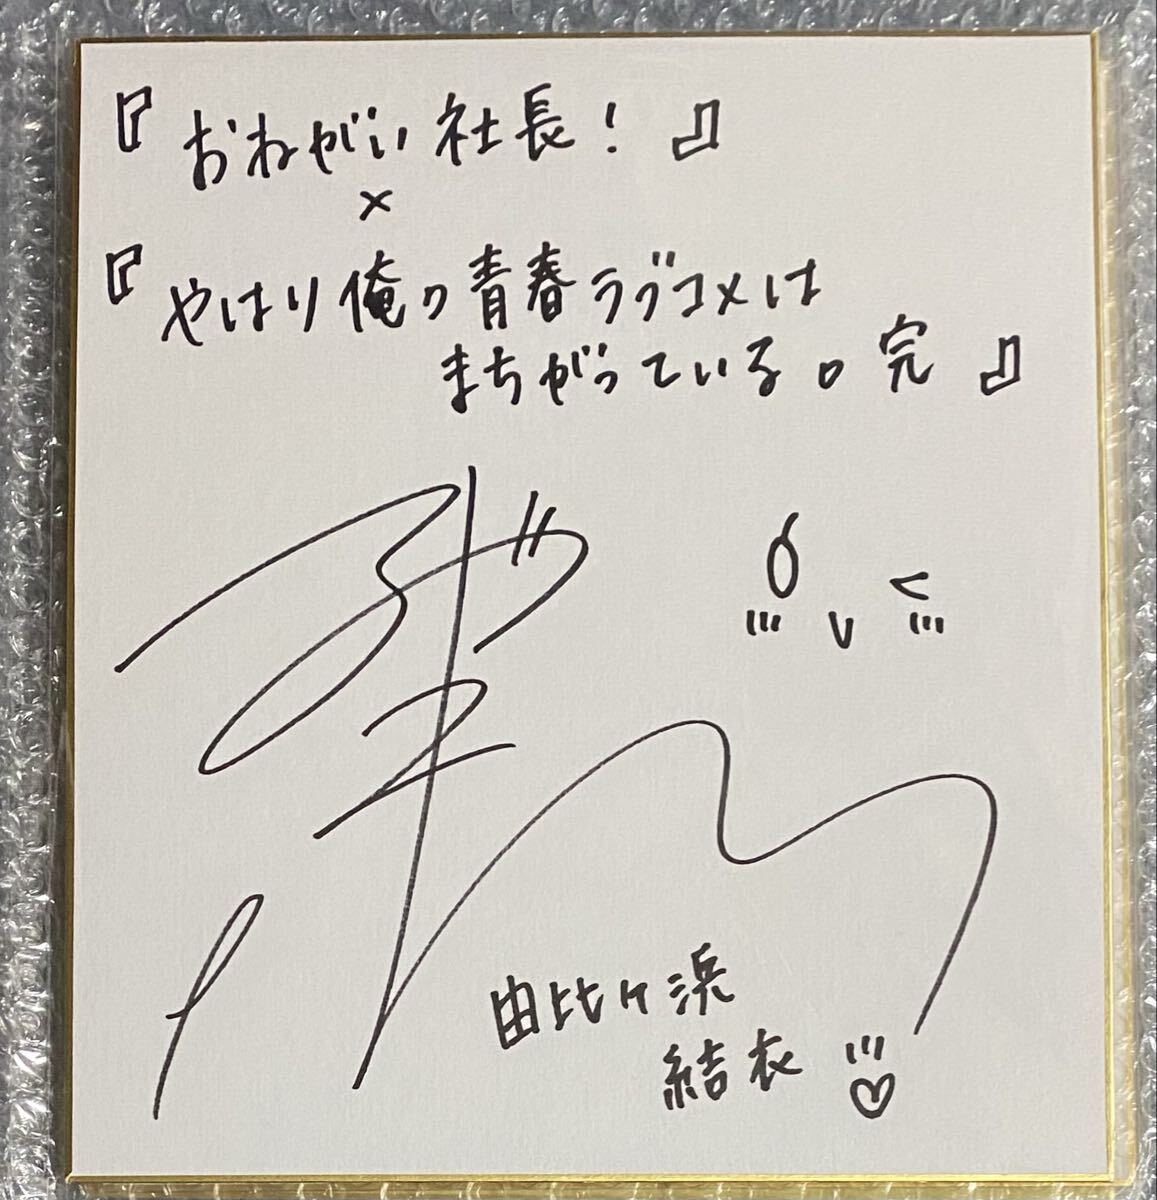 『おねがい社長！』
×
『やはり俺の青春ラブコメは
まちがっている。完』
由比ヶ浜
結衣